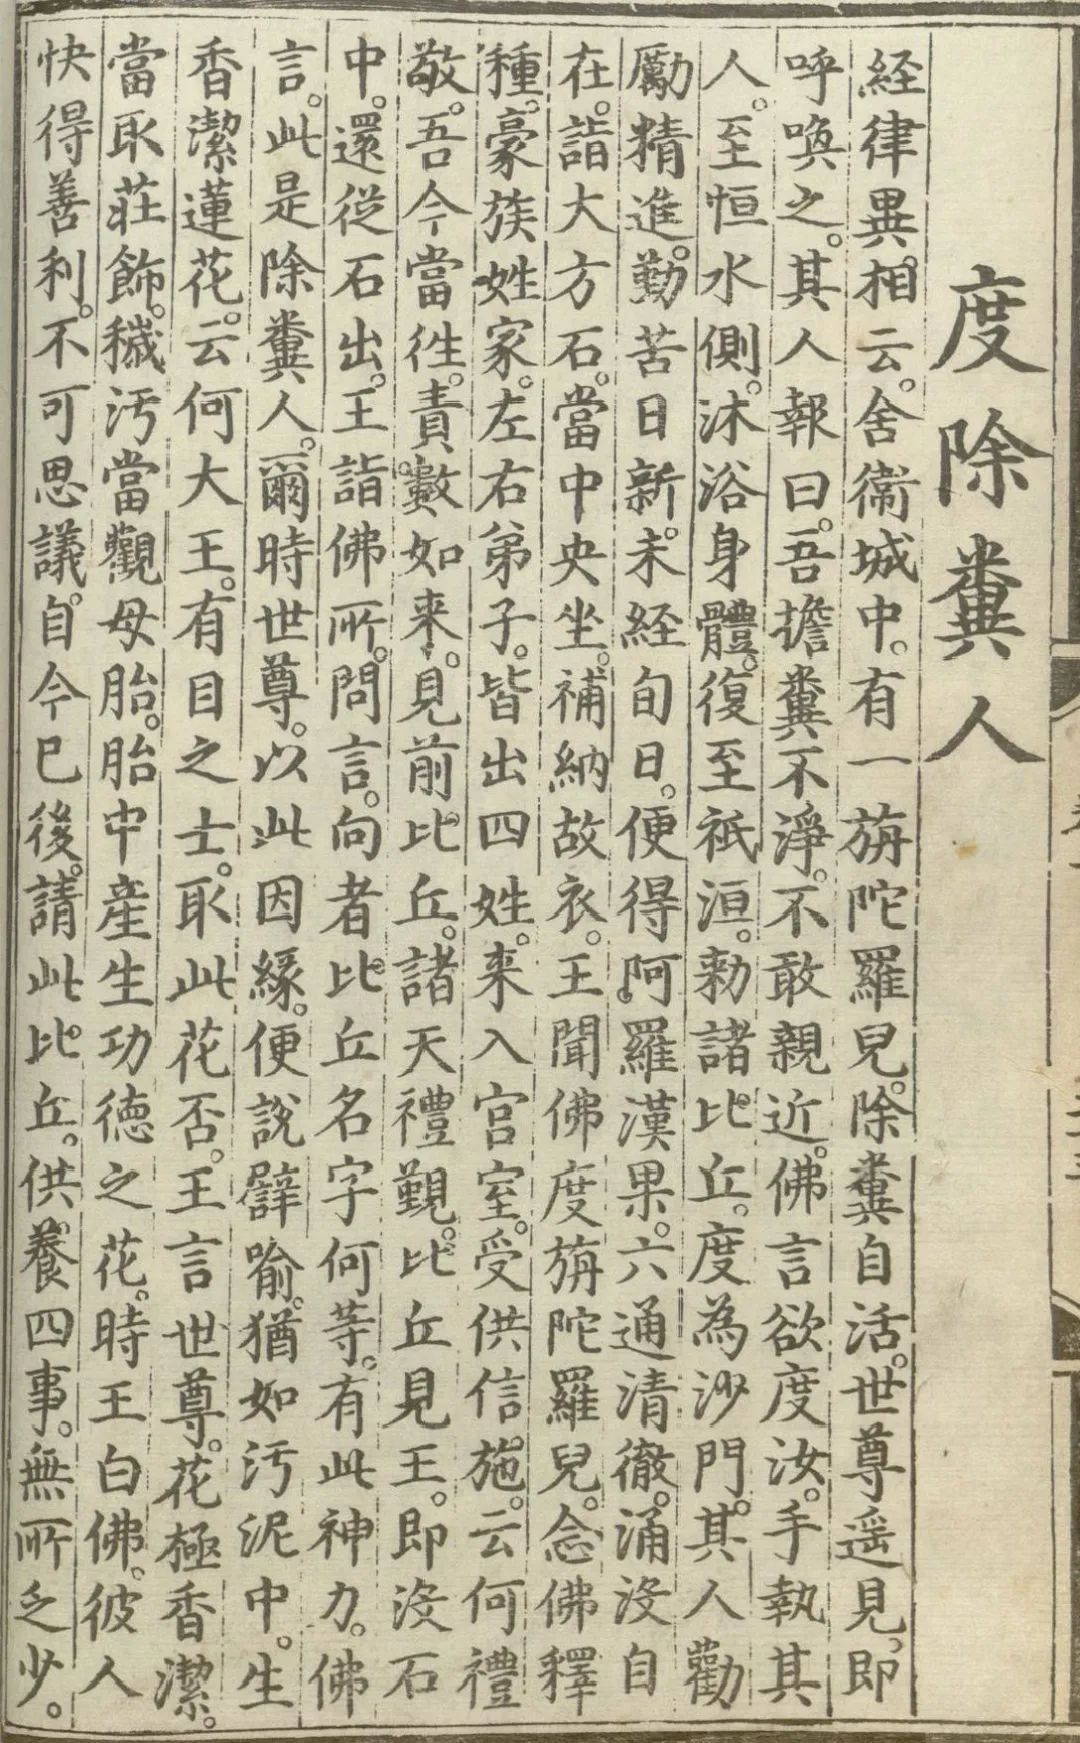 度除糞人
経律異。相云。舍衞城中。有一旃陀羅兒。除糞自活。世尊遥見。即
呼喚之。其人報曰。吾擔糞不淨。不敢親近。佛言欲度汝。手執其
人。至恒水側。沐浴身體。復至祇洹。勅諸比丘。度為沙門。其人勸
勵精進。勤苦日新。未経旬日。便得阿。羅漢果。六通清徹。涌沒自
在。詣大方石。當中央坐。補納故衣。王聞佛度旃陀羅兒。念佛釋
種。豪族姓家。左右弟子。皆出四姓。来入宫室。受供信施。云何禮
敬。吾今當徃。責數如来。見前比丘。諸天禮覲。比丘見王。即沒石
中。還從石出。王詣佛所。問言。向者比丘名字何等。有此神力。佛
言。此是除糞人。爾時世尊。以此因緣。便說譬喻。猶如汚泥中。生
香潔蓮花。云何大王。有目之士。取此花否。王言世尊。花極香潔。
當取莊飾。穢汚當觀母胎。胎中産生功德之花。時王白佛。彼人
快得善利。不可思議。自今已後。請此比丘。供養四事。無所乏少。